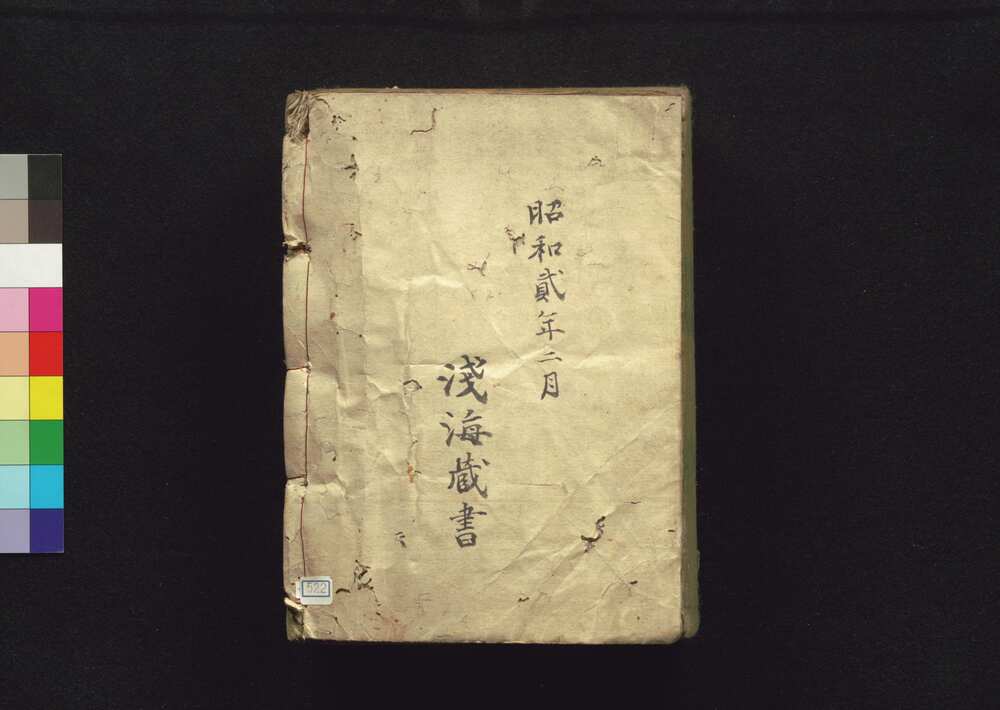 昭和貳年二月
淺海蔵書
522